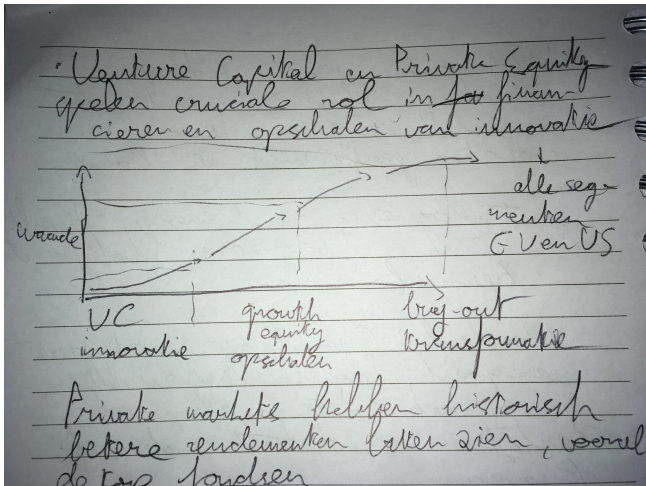 · Venture Capital en Private Equity
spelen cruciale rol in finan
cieren en opschalen van innovatie
alle seg-
menten
EV en US
waarde
VC
innovatie
growth
equity
opschalen
buy-out
transformatie
Private markets hebben historisch
betere rendementen laten zien, vooral
de top fondsen